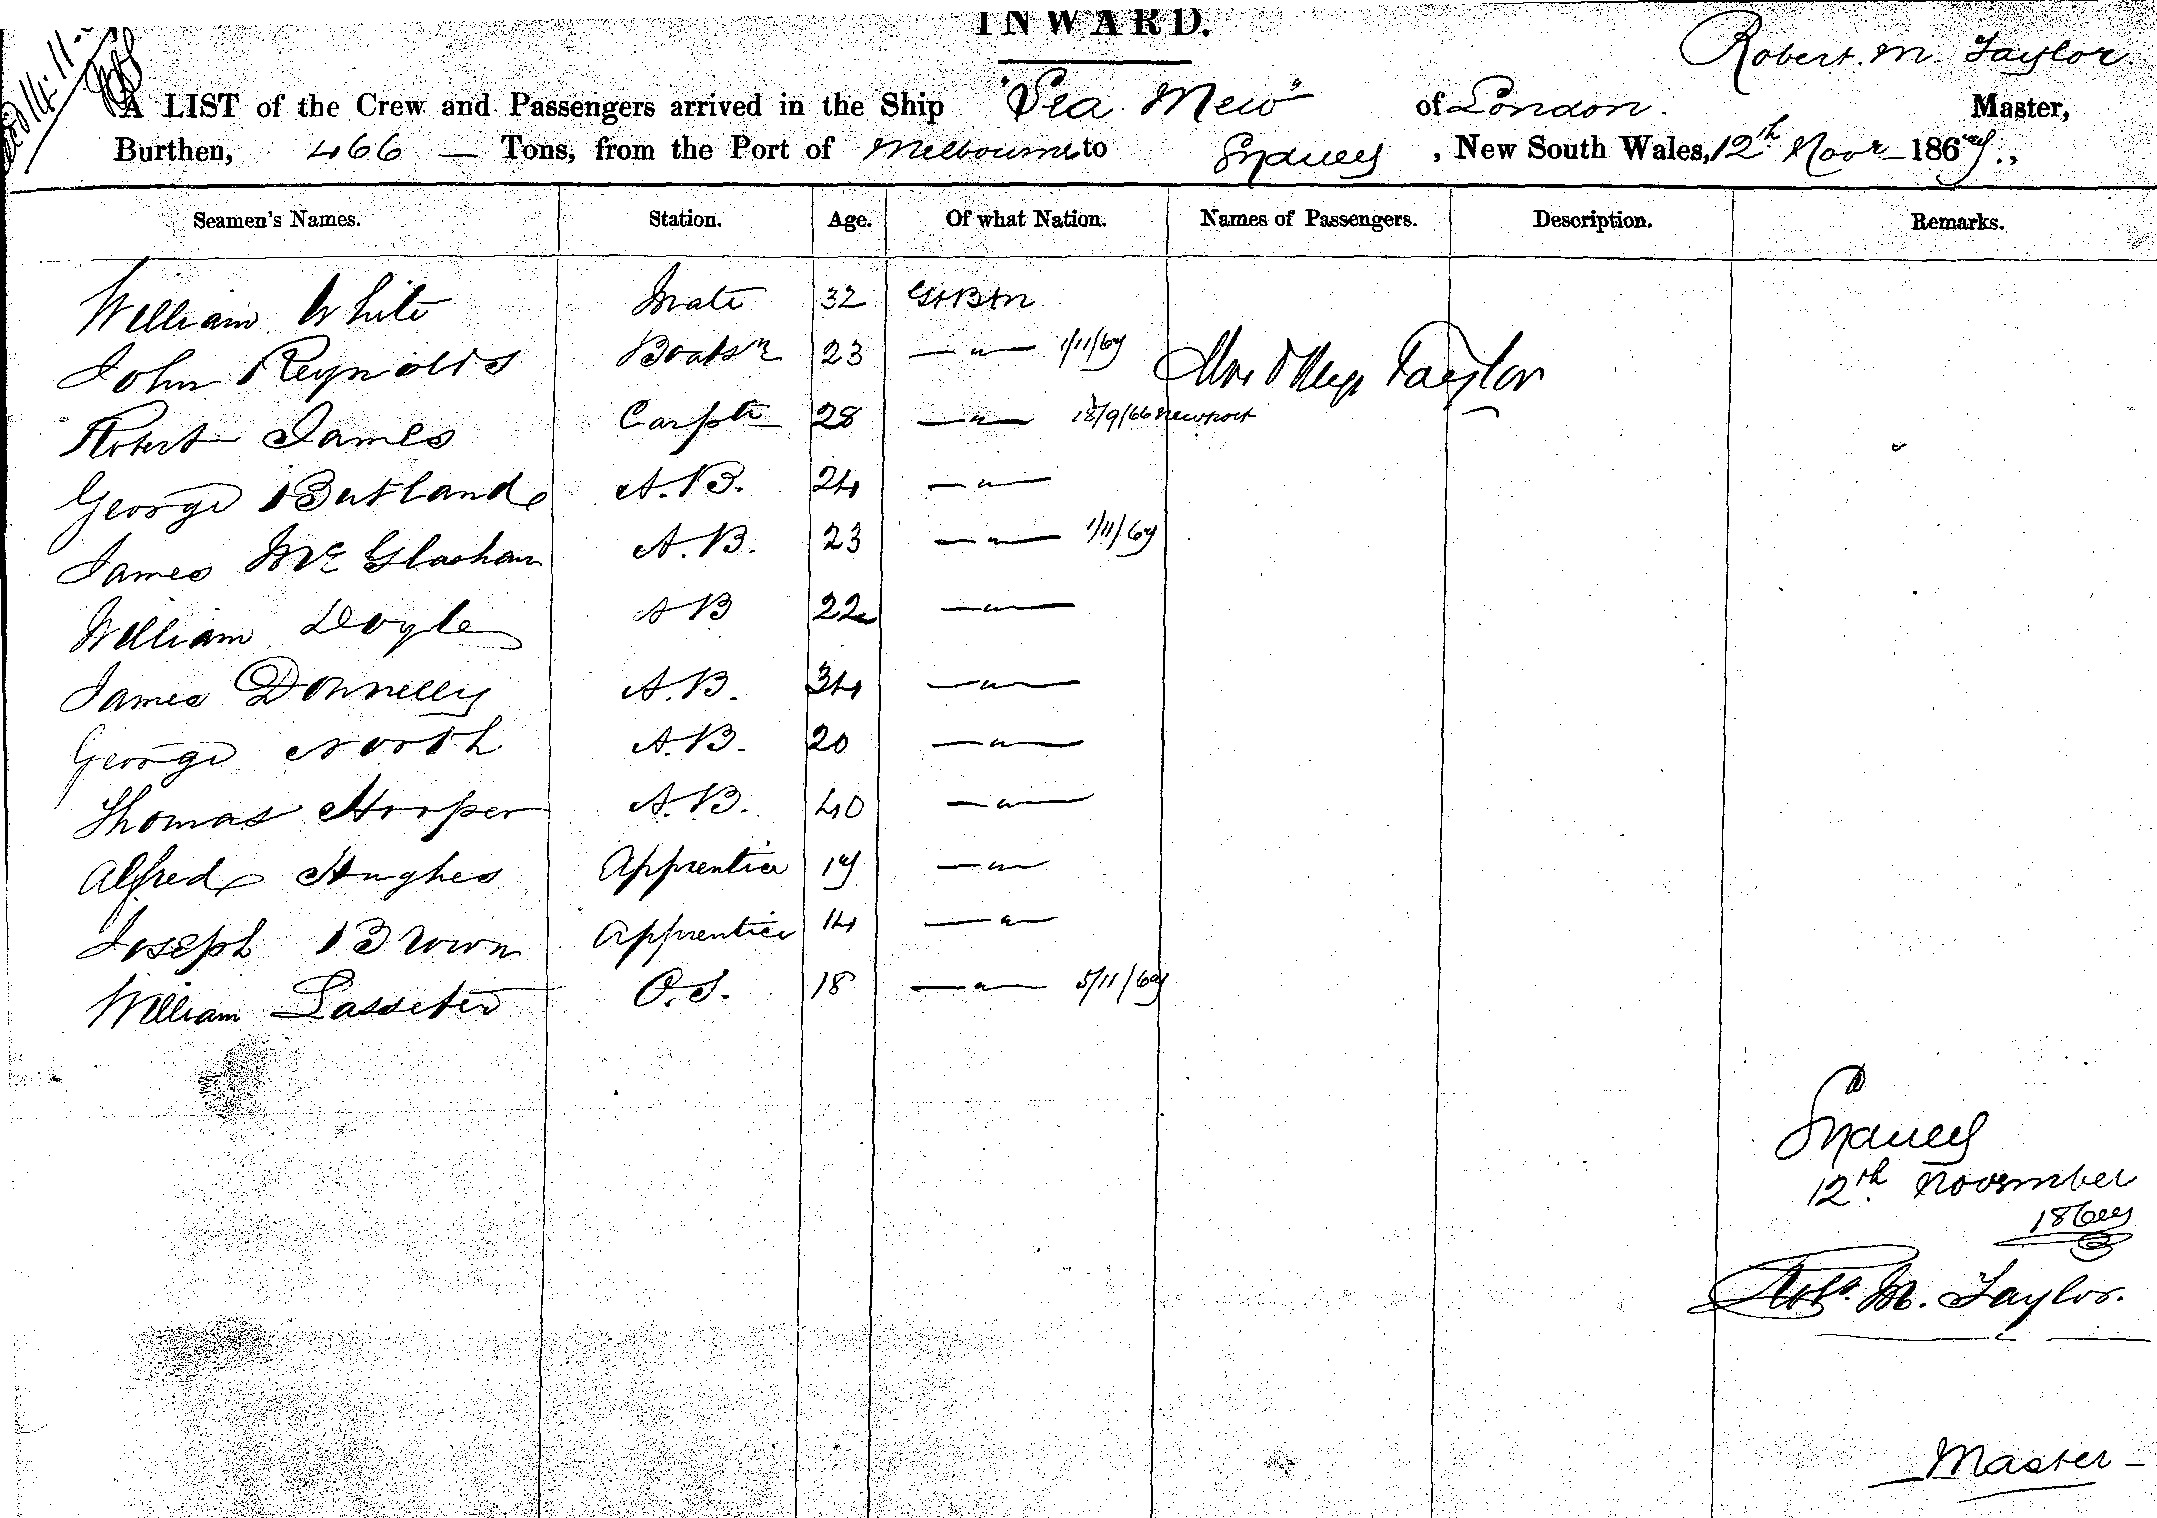 INWARD.
Robert. M. Taylor
A LIST of the Crew and Passengers arrived in the Ship "Sea Mew" of London. Master,
Burthen, 466 — Tons, from the Port of Melbourne to Sydney, New South Wales, 12th Novr 1867.,
Seamen's Names. Station. Age. Of what Nation. Names of Passengers. Description. Remarks.
William White Mate 32 Gt Btn
John Reynolds Boatsn 23 — " — 1/11/67 Mrs Taylor
Robert James Carptr 28 — " — 18/9/66 Newport
George Butland A.B. 24 — " —
James McGlashan A.B. 23 — " — 1/11/67
William Doyle AB 22 — " —
James Donnelly A.B. 34 — " —
George North A.B. 20 — " —
Thomas Hooper A.B. 40 — " —
Alfred Hughes Apprentice 17 — " —
Joseph Brown Apprentice 14 — " —
William Lasseter O.S. 18 — " — 5/11/67
Sydney
12th November
1867
Robt. M. Taylor.
Master